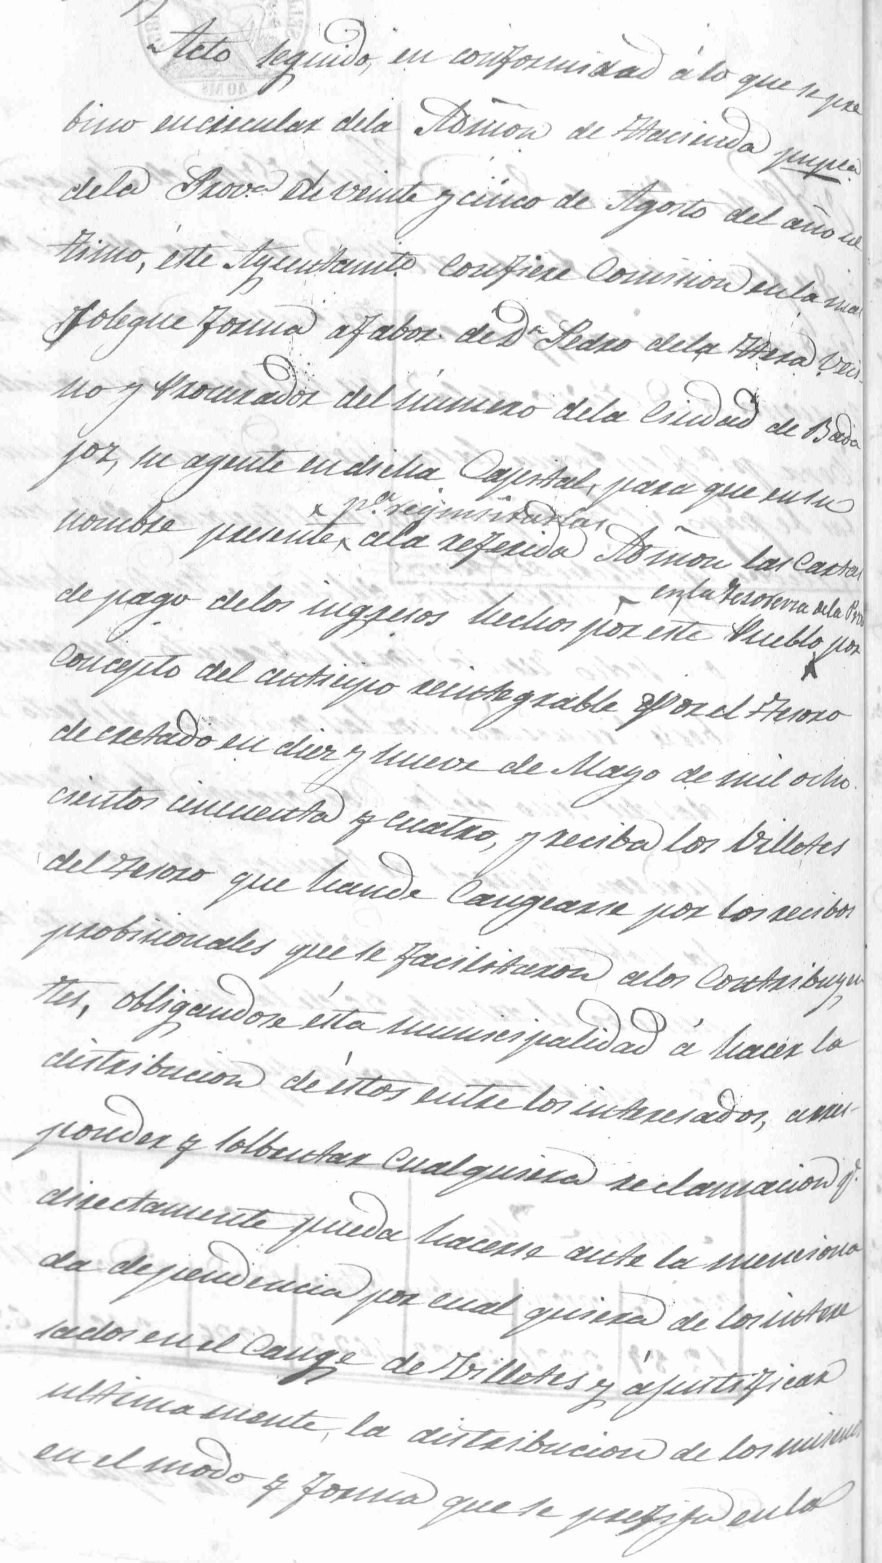 Acto seguido, en conformidad á lo que se pre
bino en circular dela Admon de Hacienda
dela Prov.a de veinte y cinco de Agosto del año ul
timo, éste Ayuntamito confiere Comision en la mas
solegne forma afabor de Dn Pedro dela Hera veci-
no y Procurador del número dela Ciudad de Bada
joz, su agente en dicha Capital, para que en su
pa. rejimitarlas
nombre presente ala referida Admon las Cartas
en la Tesoreria dela Prov
de pago delos ingresos hechos por este Pueblo por
concepto del anticipo reintegrable por el Tesoro
decretado en diez y nueve de Mayo de mil ocho
cientos cincuenta y cuatro, y reciba los Villetes
del Tesoro que hande Cangearse por los recibos
probisionales que se facilitaron alos Contribuyen
tes, obligandose ésta municipalidad á hacer la
distribucion de éstos entre los interesados, arres-
ponder y solbentar cualquiera reclamacion q.
directamente pueda hacerse ante la menciona
da dependencia por cual quiera de los intere
sados en el Cange de Villetes y ájustificar
ultimamente, la distribucion de los mismos
en el modo y forma que se prefija en la